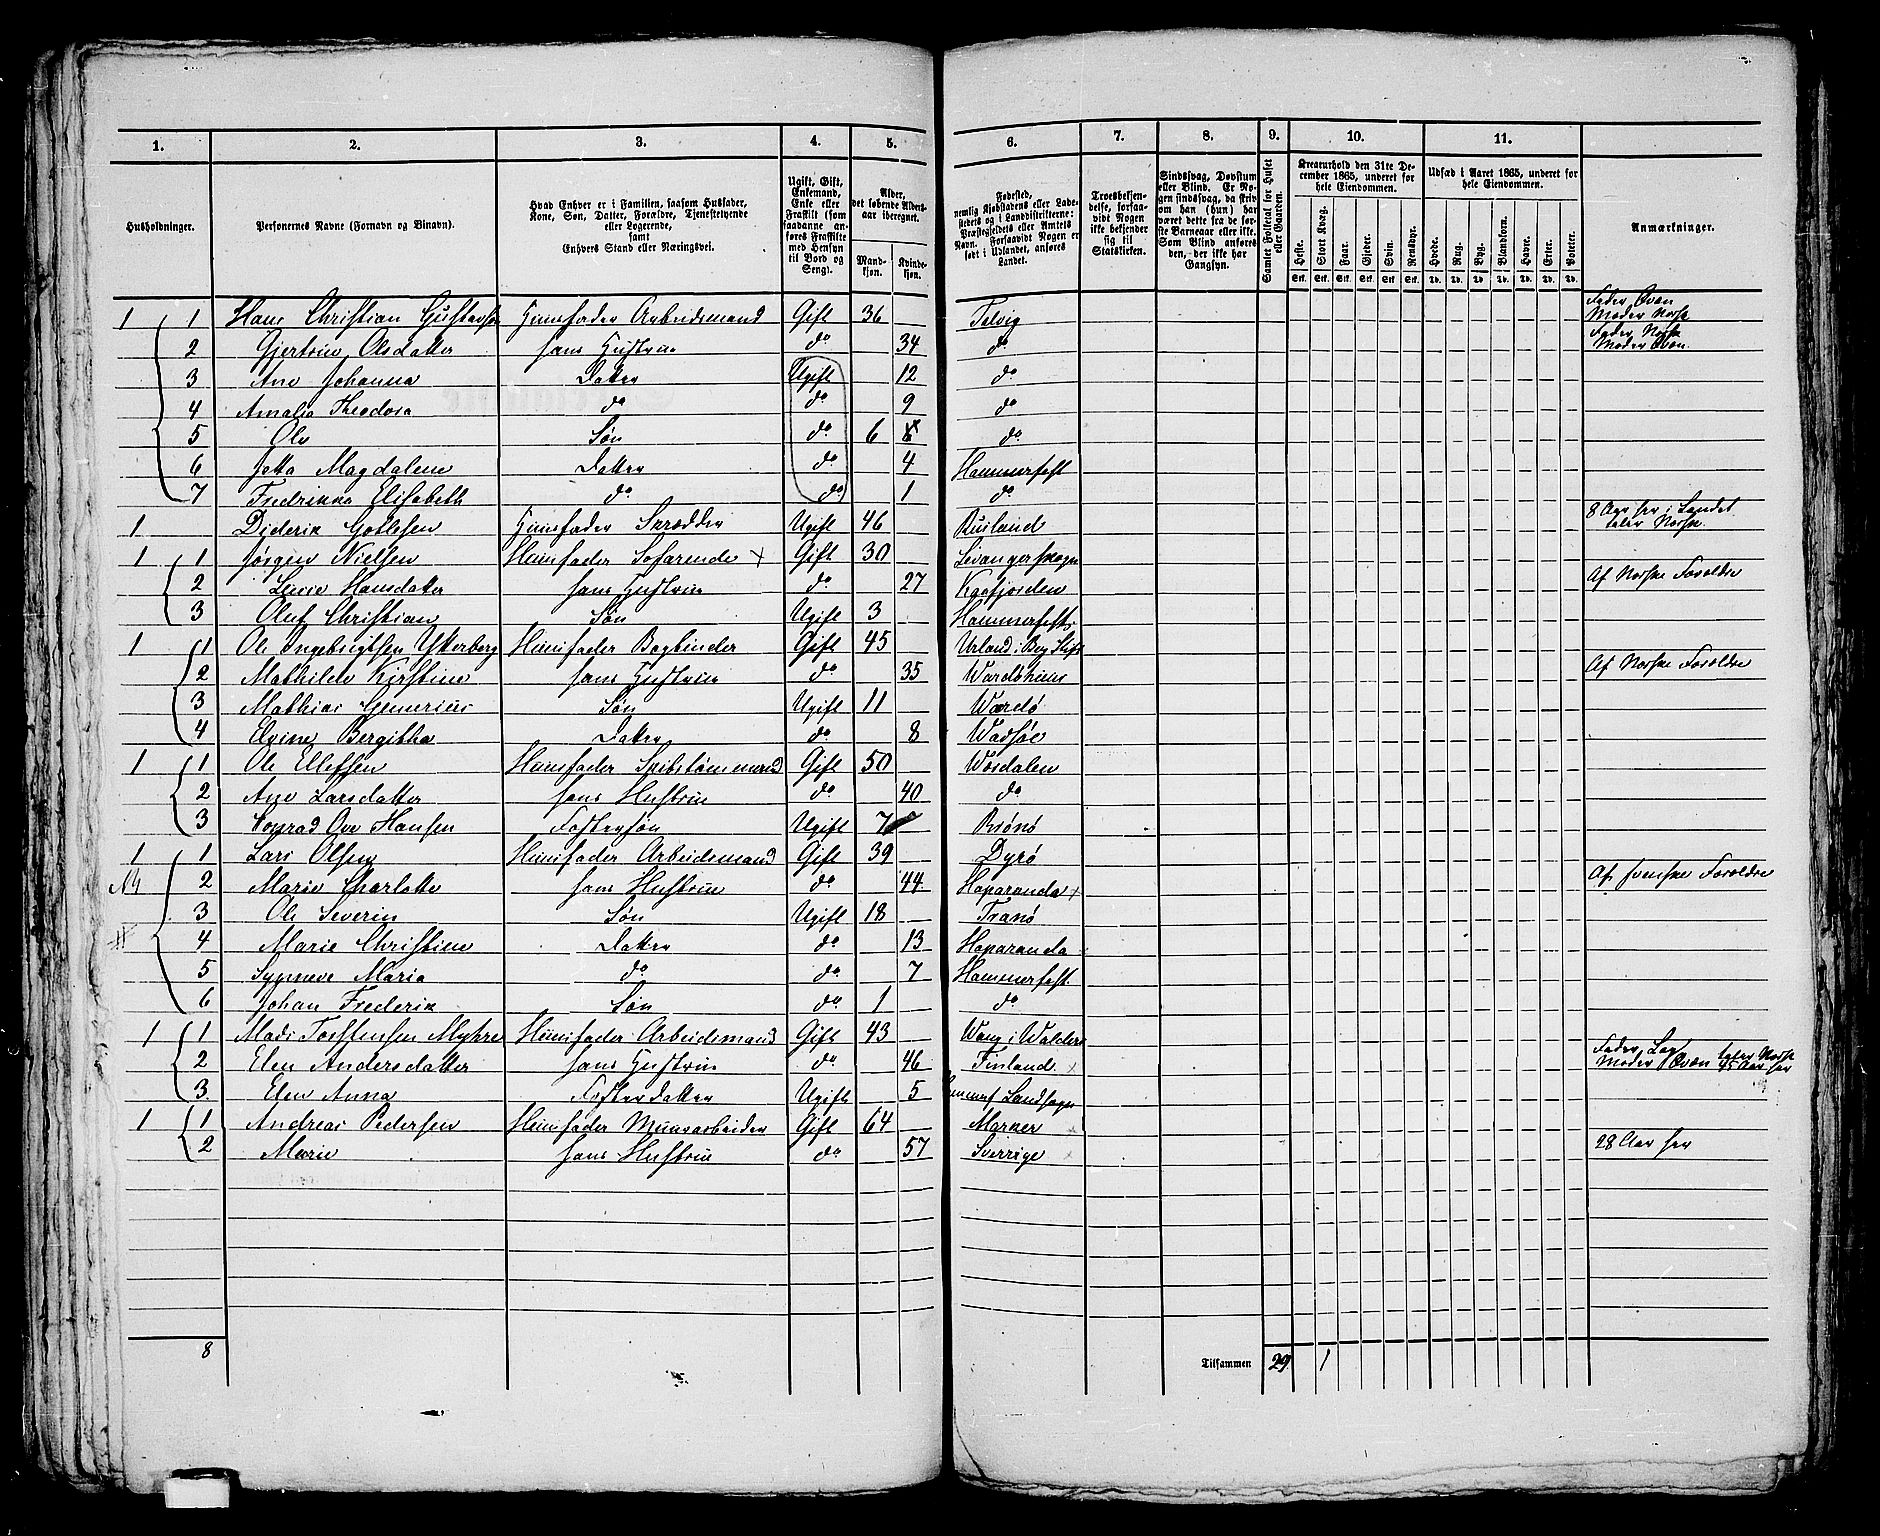 1. 2. 3. 4. 5. 6. 7. 8. 9. 10. 11.
Husholdninger.
Personernes Navne (Fornavn og Binavn).
Hvad Enhver er i Familien, saasom Husfader, Kone, Søn, Datter, Forældre, Tjenestetyende eller Logerende, samt Enhvers Stand eller Næringsvei.
Ugift, Gift, Enkemand, Enke eller Fraskilt (som saadanne anføres Fraskilte med Hensyn til Bord og Seng).
Alder, det løbende Alders-aar iberegnet.
Mandkjøn. Kvindekjøn.
Fødested, nemlig Kjøbstadens eller Ladestedets og i Landdistrikterne: Præstegjeldets eller Amtets Navn. Forsaavidt Nogen er født i Udlandet, anføres Landet.
Troesbekjendelse, forsaavidt Nogen ikke bekjender sig til Statskirken.
Sindssvag, Døvstum eller Blind. Er Nogen sindssvag, da skrives om han (hun) har været dette fra de første Barneaar eller ikke. Som Blind anføres den, der ikke har Gangsyn.
Samlet Folketal for Huset eller Gaarden.
Kreaturhold den 31te December 1865, underet for hele Eiendommen.
Heste. Stort Kvæg. Faar. Gjeder. Svin. Rensdyr.
Udsæd i Aaret 1865, underet for hele Eiendommen.
Hvede. Rug. Byg. Blandkorn. Havre. Erter. Poteter.
Anmærkninger.
1 1 Hans Christian Gustavsen Huusfader Arbeidsmand Gift 36 Talvig Fader Qvæn Moder Norsk
2 Gjertrue Olsdatter hans Hustrue do 34 do Fader Norsk Moder Qvæn
3 Ane Johanna Datter Ugift 12 do
4 Amalia Theodora do do 9 do
5 Ole Søn do 6 do
6 Jetta Magdalene Datter do 4 Hammerfest
7 Fredrikka Elisabeth do do 1 do
1 Diderik Gotlesen Huusfader Skrædder Ugift 46 Rusland 8 Aar her i Landet taler Norsk
1 1 Jørgen Nielsen Huusfader Søfarende x Gift 30 Levanger sogn
2 Lene Hansdatter hans Hustrue do 27 Kaafjorden Af Norske Forældre
3 Oluf Christian Søn Ugift 3 Hammerfest
1 1 Ole Ingebrigtsen Ytterberg Huusfader Bogbinder Gift 45 Urland i Berg Stift
2 Mathilde Kirstine hans Hustrue do 35 Wardøhuus Af Norske Forældre
3 Mathias Søn Ugift 11 Wardø
4 Elvine Bergitha Datter do 8 Wadsøe
1 1 Ole Ellefsen Huusfader Skibstømmermd Gift 50 Wærdalen
2 Ane Larsdatter hans Hustrue do 40 do
3 Konrad Ove Hansen Fostersøn Ugift 7 Brønø
1 1 Lars Olsen Huusfader Arbeidsmand Gift 39 Dyrø
2 Marie Charlotte hans Hustrue do 44 Haparanda x Af svenske Forældre
3 Ole Severin Søn Ugift 18 Tranø
4 Marie Christine Datter do 13 Haparanda
5 Synneve Maria do do 7 Hammerfest
6 Johan Frederik Søn do 1 do
1 1 Mads Torstensen Myhre Huusfader Arbeidsmand Gift 43 Wang i Walders
2 Elen Andersdatter hans Hustrue do 46 Finland x Fader Lap Moder Qvæn taler Norsk 45 Aar her
3 Elen Anna Fosterdatter Ugift 5 Hammerf Landsogn
1 1 Andreas Pedersen Huusfader Muurarbeider Gift 64 Marker
2 Marie hans Hustrue do 57 Sverrige x 28 Aar her
8 Tilsammen 29 1